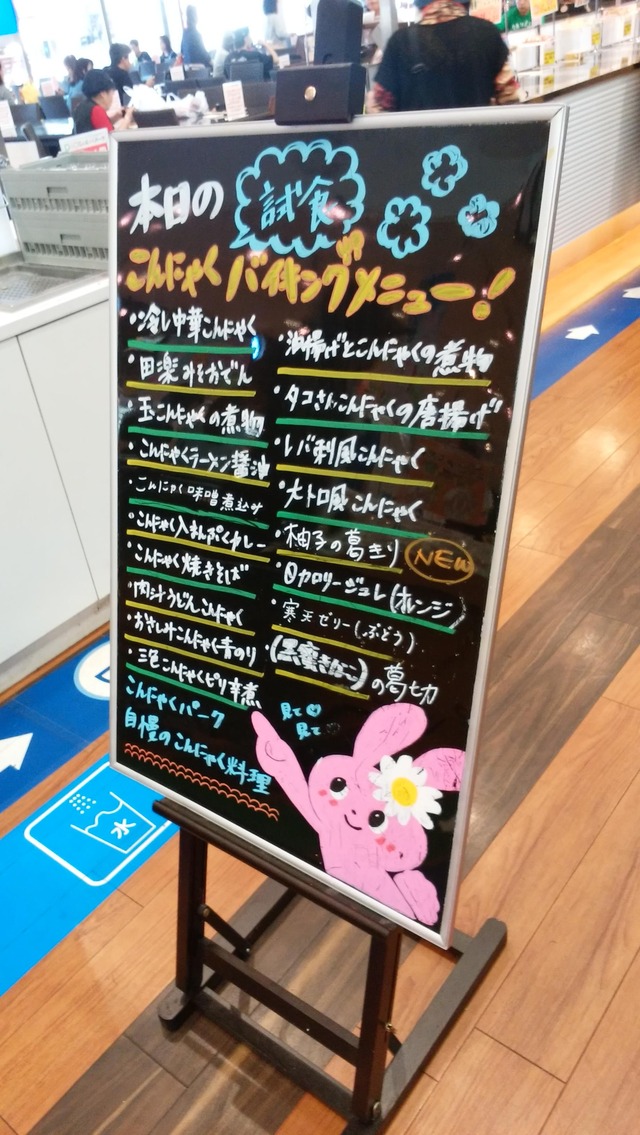 本日の
試食
こんにゃくバイキングメニュー!
・冷し中華こんにゃく
・田楽みそおでん
・玉こんにゃくの煮物
・こんにゃくラーメン醤油
・こんにゃく味噌煮込み
・こんにゃく入まんぷくカレー
・こんにゃく焼きそば
・肉汁うどんこんにゃく
・おさしみこんにゃく青のり
・三色こんにゃくピリ辛煮
・油揚げとこんにゃくの煮物
・タコさんこんにゃくの唐揚げ
・レバ刺風こんにゃく
・大トロ風こんにゃく
・柚子の葛きり
NEW
・0カロリージュレ(オレンジ)
・寒天ゼリー(ぶどう)
・(黒蜜きなこ)の葛切
こんにゃくパーク
自慢のこんにゃく料理
見て
見て
水